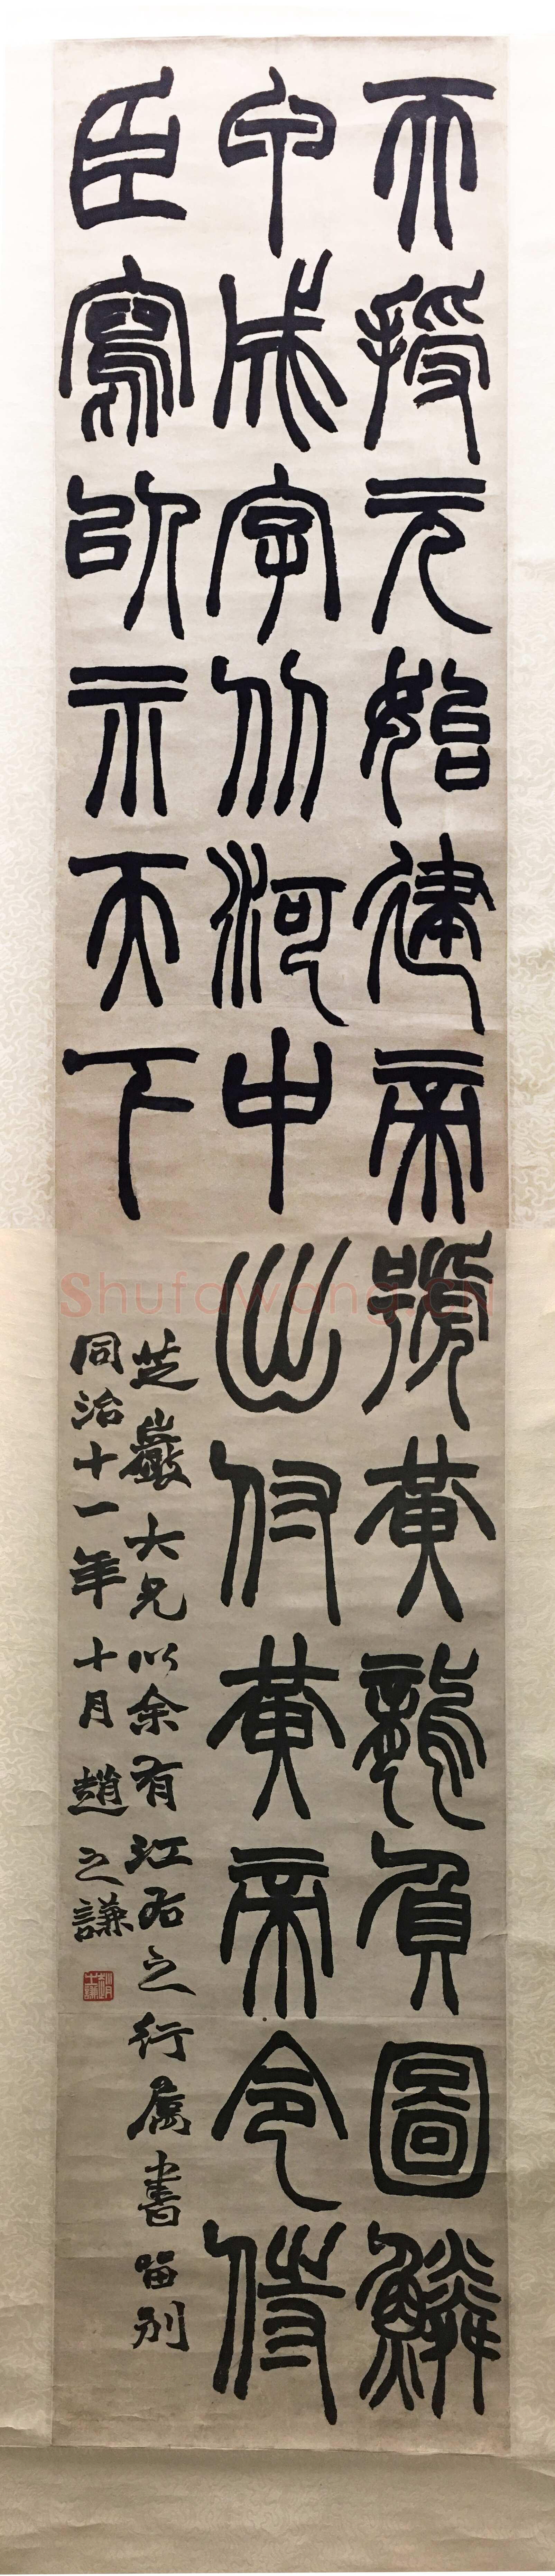 天授元始建帝號黃龍負圖鱗
甲成字从河中出付黃帝令侍
臣寫以示天下
芝巖大兄以余有江右之行属書留別
同治十一年十月趙之謙
Shufawang.CN